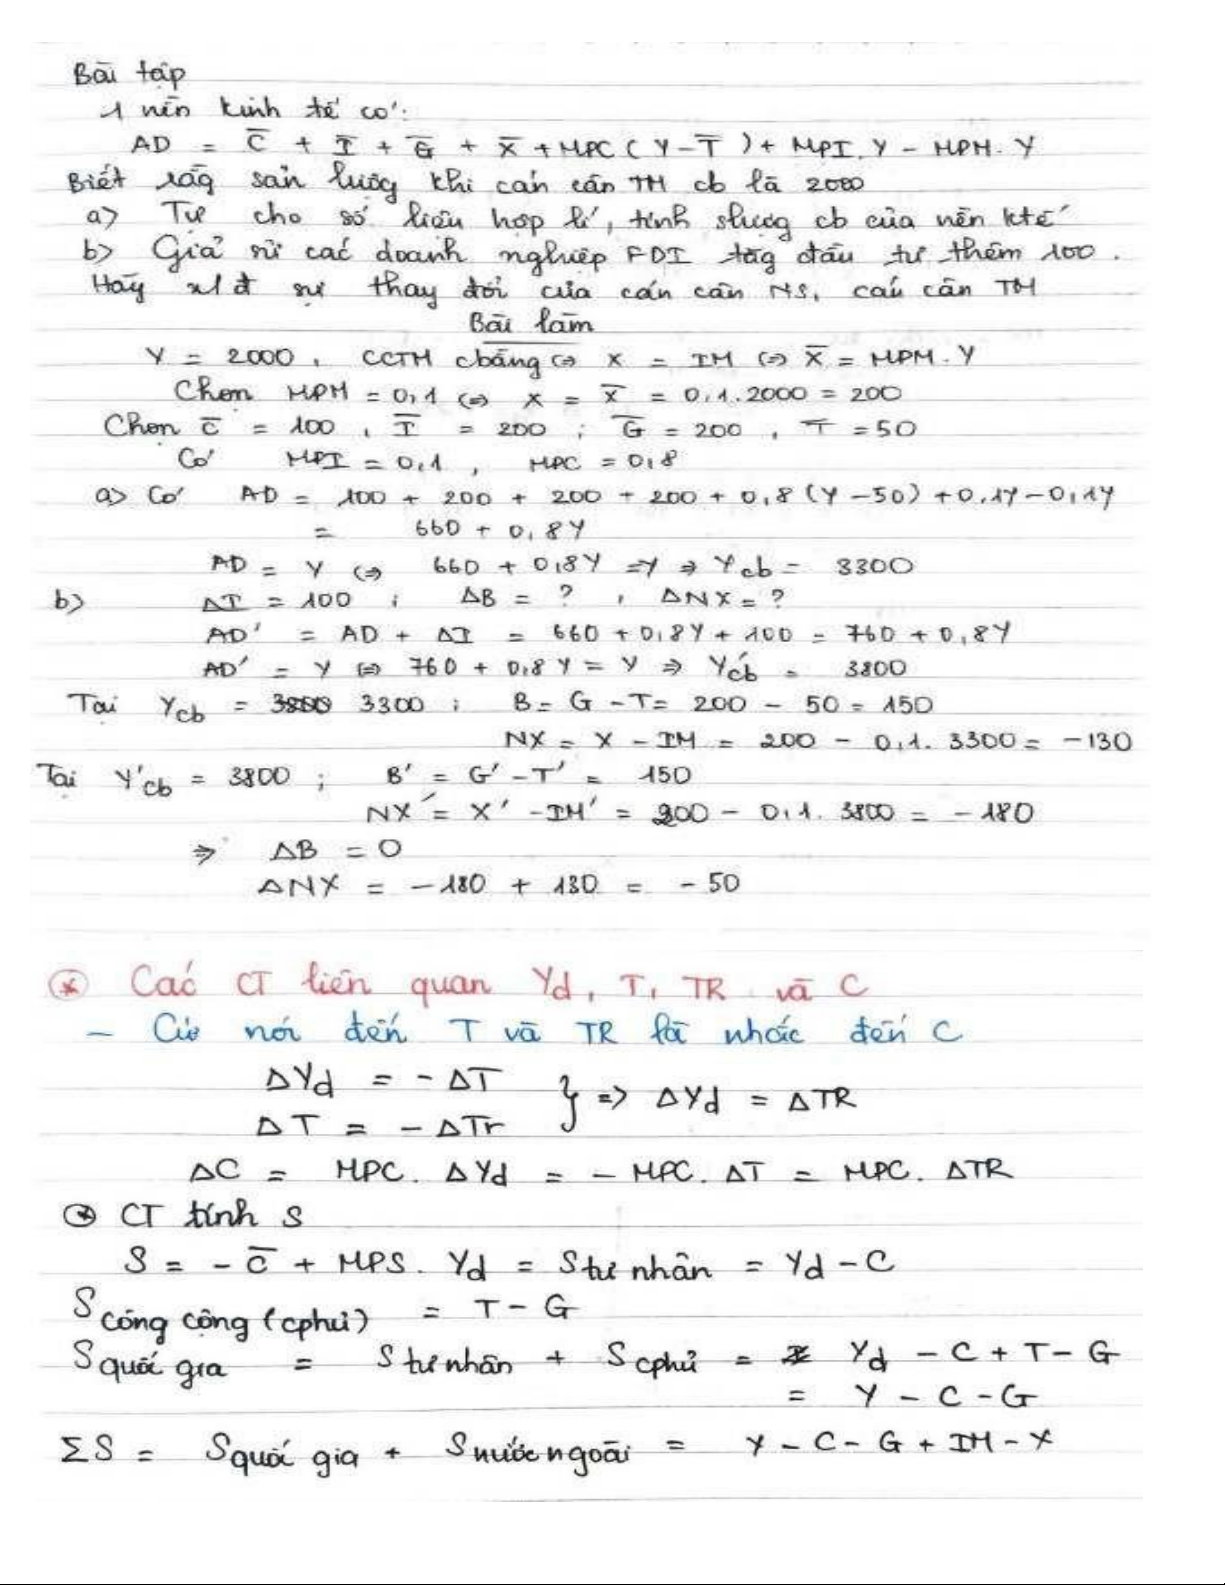 Bài tập
1 nền kinh tế có:
AD = C̅ + I̅ + G̅ + X̅ + MPC ( Y - T̅ ) + MPI. Y - MPM. Y
Biết rằg sản lượg khi cán cân TM cb là 2000
a> Tự cho số liệu hợp lí, tính slượg cb của nền ktế
b> Giả sử các doanh nghiệp FDI tăg đầu tư thêm 100.
Hãy xđ sự thay đổi của cán cân NS, cán cân TM
Bài làm
Y = 2000, CCTM cbằng ⇔ X = IM ⇔ X̅ = MPM. Y
Chọn MPM = 0,1 ⇔ X = X̅ = 0,1.2000 = 200
Chọn C̅ = 100, I̅ = 200; G̅ = 200, T̅ = 50
Có MPI = 0,1, MPC = 0,8
a> Có AD = 100 + 200 + 200 + 200 + 0,8 (Y - 50) + 0,1Y - 0,1Y
= 660 + 0,8Y
AD = Y ⇔ 660 + 0,8Y = Y ⇒ Ycb = 3300
b> ΔI = 100; ΔB = ?, ΔNX = ?
AD' = AD + ΔI = 660 + 0,8Y + 100 = 760 + 0,8Y
AD' = Y ⇔ 760 + 0,8Y = Y ⇒ Y'cb = 3800
Tại Ycb = 3300; B = G - T = 200 - 50 = 150
NX = X - IM = 200 - 0,1. 3300 = -130
Tại Y'cb = 3800; B' = G' - T' = 150
NX' = X' - IM' = 200 - 0,1. 3800 = -180
⇒ ΔB = 0
ΔNX = -180 + 130 = -50
⊛ Các CT liên quan Yd, T, TR và C
- Cứ nói đến T và TR là nhắc đến C
ΔYd = - ΔT
ΔT = - ΔTr } => ΔYd = ΔTR
ΔC = MPC. ΔYd = - MPC. ΔT = MPC. ΔTR
⊛ CT tính S
S = - C̅ + MPS. Yd = S tư nhân = Yd - C
S công cộng (cphủ) = T - G
S quốc gia = S tư nhân + S cphủ = Yd - C + T - G
= Y - C - G
ΣS = S quốc gia + S nước ngoài = Y - C - G + IM - X